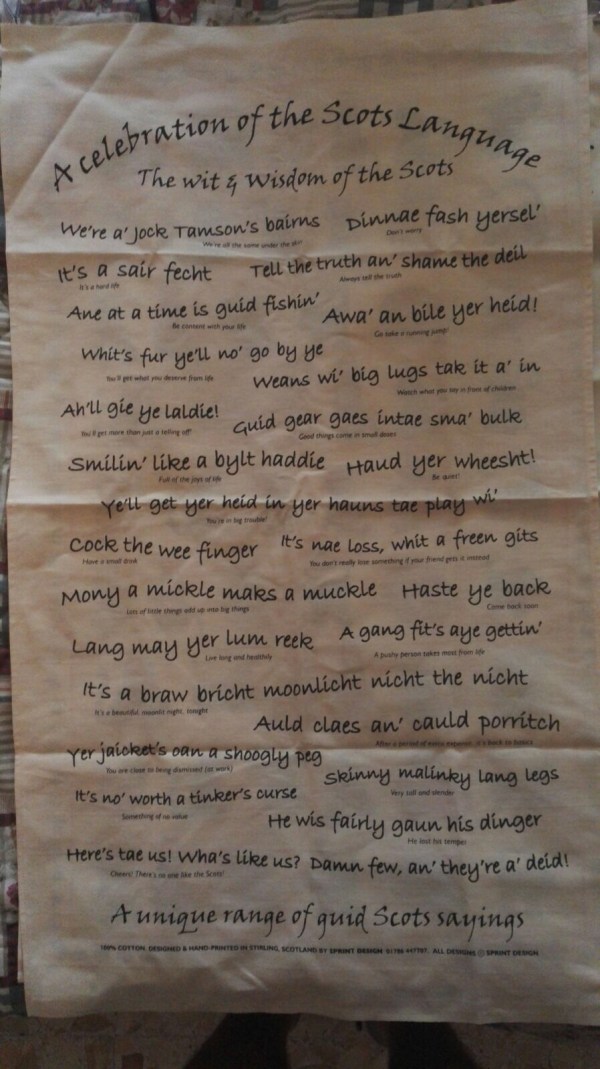 A celebration of the Scots Language
The wit & Wisdom of the Scots
We're a' Jock Tamson's bairns Dinnae fash yersel'
We're all the same under the skin Don't worry
It's a sair fecht Tell the truth an' shame the deil
It's a hard life Always tell the truth
Ane at a time is guid fishin' Awa' an bile yer heid!
Be content with your life Go take a running jump!
Whit's fur ye'll no' go by ye
You'll get what you deserve from life
Weans wi' big lugs tak it a' in
Watch what you say in front of children
Ah'll gie ye laldie! Guid gear gaes intae sma' bulk
You'll get more than just a telling off Good things come in small doses
Smilin' like a bylt haddie Haud yer wheesht!
Full of the joys of life Be quiet!
Ye'll get yer heid in yer hauns tae play wi'
You're in big trouble!
Cock the wee finger It's nae loss, whit a freen gits
Have a small drink You don't really lose something if your friend gets it instead
Mony a mickle maks a muckle Haste ye back
Lots of little things add up into big things Come back soon
Lang may yer lum reek A gang fit's aye gettin'
Live long and healthily A pushy person takes most from life
It's a braw bricht moonlicht nicht the nicht
It's a beautiful, moonlit night, tonight
Auld claes an' cauld porritch
After a period of extra expense, it's back to basics
Yer jaicket's oan a shoogly peg
You are close to being dismissed (at work)
Skinny malinky lang legs
Very tall and slender
It's no' worth a tinker's curse
Something of no value
He wis fairly gaun his dinger
He lost his temper
Here's tae us! Wha's like us? Damn few, an' they're a' deid!
Cheers! There's no one like the Scots!
A unique range of guid Scots sayings
100% COTTON. DESIGNED & HAND-PRINTED IN STIRLING, SCOTLAND BY SPRINT DESIGN 01786 447707. ALL DESIGNS © SPRINT DESIGN